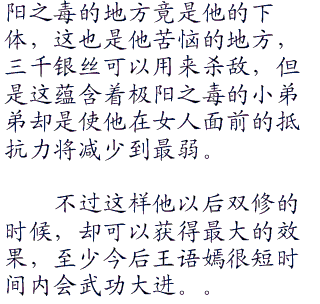 阳之毒的地方竟是他的下
体，这也是他苦恼的地方，
三千银丝可以用来杀敌，但
是这蕴含着极阳之毒的小弟
弟却是使他在女人面前的抵
抗力将减少到最弱。
不过这样他以后双修的
时候，却可以获得最大的效
果，至少今后王语嫣很短时
间内会武功大进。。